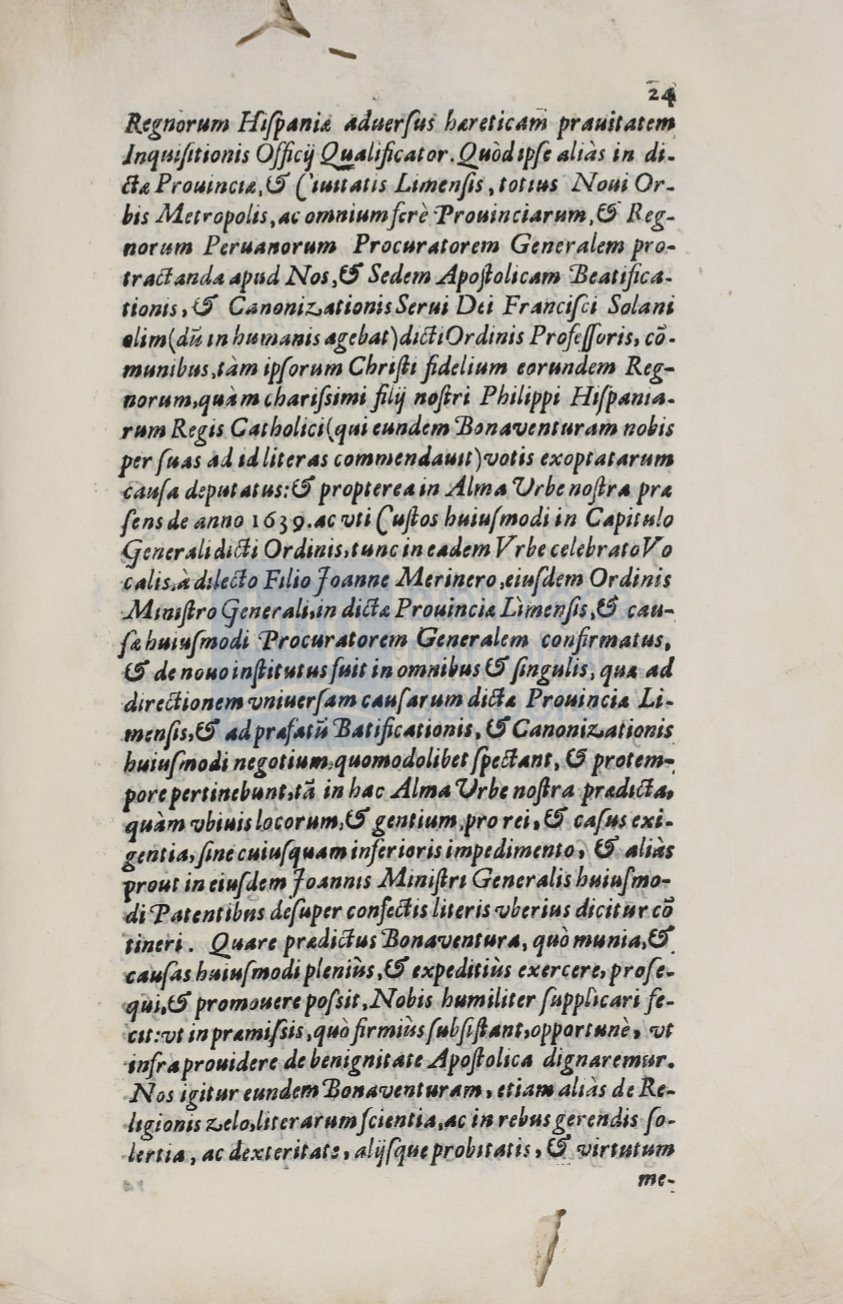 24
Regnorum Hiſpaniæ aduerſus hæreticam prauitatem
Inquiſitionis Officij Qualificator. Quòd ipſe aliàs in di-
ctæ Prouinciæ, & Ciuitatis Limenſis, totius Noui Or-
bis Metropolis, ac omnium ferè Prouinciarum, & Reg-
norum Peruanorum Procuratorem Generalem pro-
tractanda apud Nos, & Sedem Apoſtolicam Beatifica-
tionis, & Canonizationis Serui Dei Franciſci Solani
olim (dū in humanis agebat) dicti Ordinis Profeſſoris, cō-
munibus, tàm ipſorum Chriſti fidelium eorundem Reg-
norum, quàm chariſsimi filij noſtri Philippi Hiſpania-
rum Regis Catholici (qui eundem Bonaventuram nobis
per ſuas ad id literas commendauit) votis exoptatarum
cauſa deputatus: & propterea in Alma Urbe noſtra præ
ſens de anno 1639. ac vti Cuſtos huiuſmodi in Capitulo
Generali dicti Ordinis, tunc in eadem Vrbe celebrato Vo
calis, à dilecto Filio Joanne Merinero, eiuſdem Ordinis
Miniſtro Generali, in dictæ Prouinciæ Limenſis, & cau-
ſæ huiuſmodi Procuratorem Generalem confirmatus,
& de nouo inſtitutus fuit in omnibus & ſingulis, quæ ad
directionem vniuerſam cauſarum dictæ Prouinciæ Li-
menſis, & ad præfatū Batificationis, & Canonizationis
huiuſmodi negotium, quomodolibet ſpectant, & protem-
pore pertinebunt, tā in hac Alma Urbe noſtra prædicta,
quàm vbiuis locorum, & gentium, pro rei, & caſus exi-
gentia, ſine cuiuſquam inferioris impedimento, & aliàs
prout in eiuſdem Joannis Miniſtri Generalis huiuſmo-
di Patentibus deſuper confectis literis vberius dicitur cō
tineri. Quare prædictus Bonaventura, quò munia, &
cauſas huiuſmodi pleniùs, & expeditiùs exercere, proſe-
qui, & promouere poſsit, Nobis humiliter ſupplicari fe-
cit: vt in præmiſsis, quò firmiùs ſubſiſtant, opportunè, vt
infra prouidere de benignitate Apoſtolica dignaremur.
Nos igitur eundem Bonaventuram, etiam aliàs de Re-
ligionis zelo, literarum ſcientia, ac in rebus gerendis ſo-
lertia, ac dexteritate, alijſque probitatis, & virtutum
me-